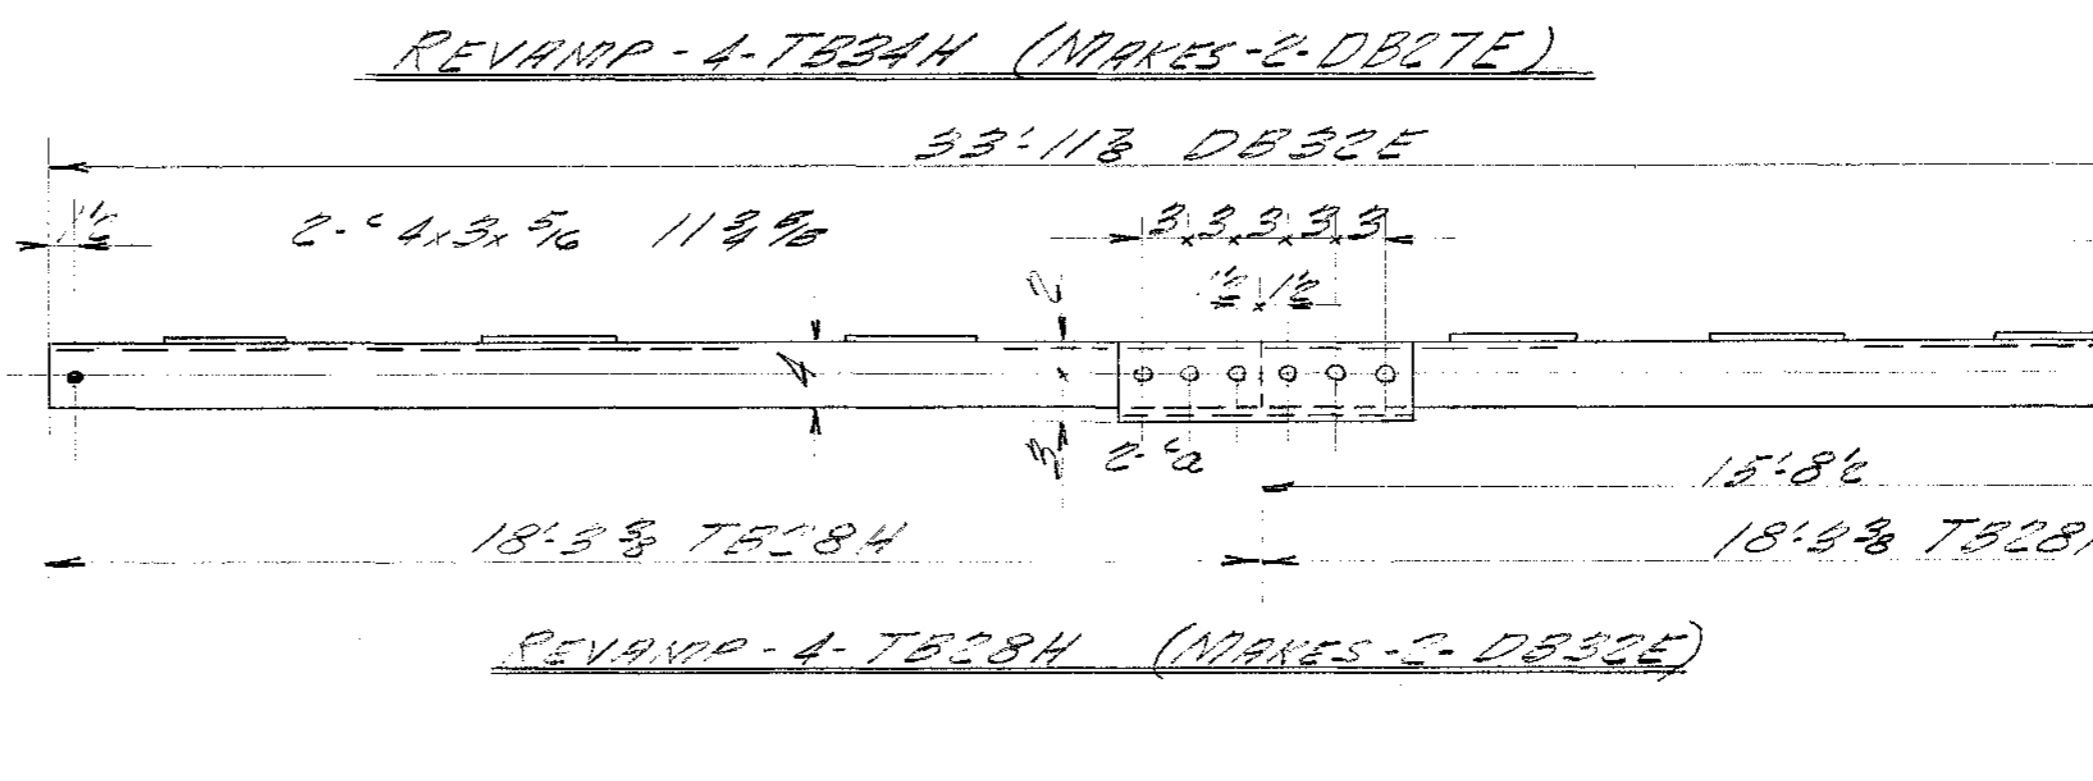 REVAMP - 4 - TB34H (MAKES - 2 - DB27E)
33'-11 7/8 DB32E
1 1/2
2-∠ 4x3x 5/16
11 3/4
3 3 3 3 3
1 1/2 1 1/2
2
4
3
2-∠a
15'-8 1/2
18'-3 3/8 TB28H
18'-3 3/8 TB28
REVAMP - 4 - TB28H (MAKES - 2 - DB32E)